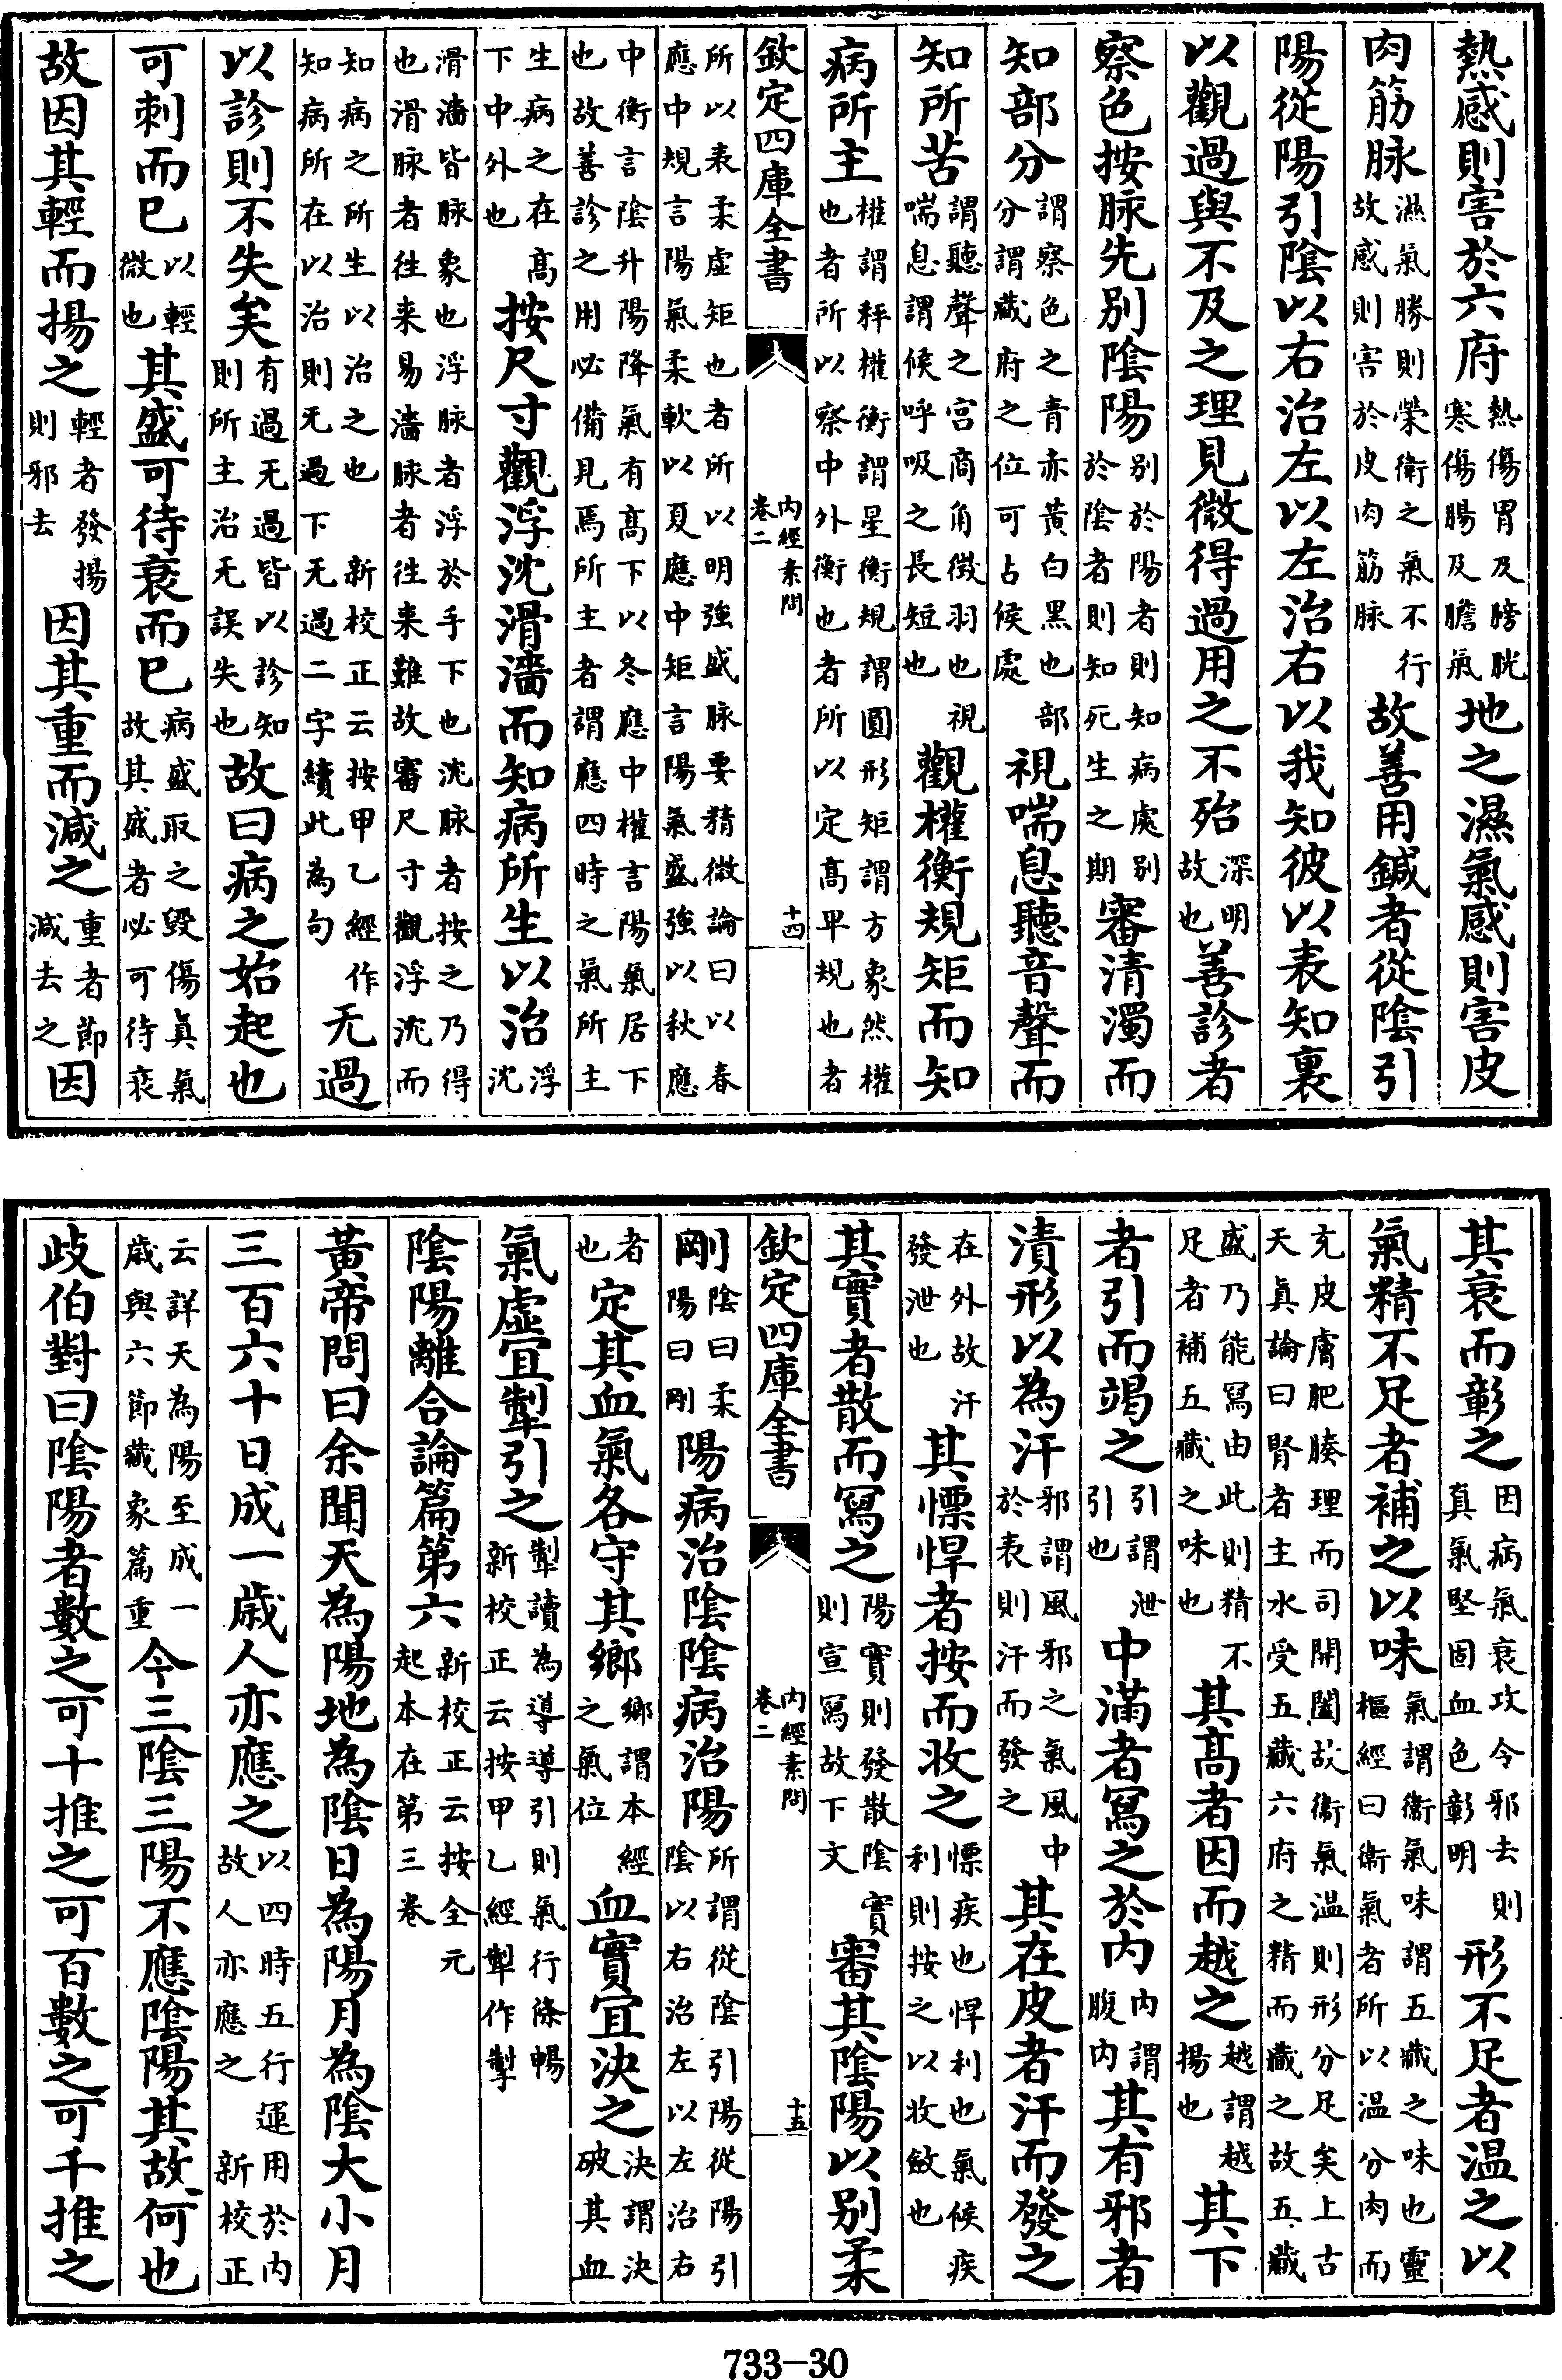 熱感則害於六府熱傷胃及膀胱寒傷腸及膽氣地之濕氣感則害皮
肉筋脉濕氣勝則榮衛之氣不行故感則害於皮肉筋脉故善用鍼者從陰引
陽從陽引陰以右治左以左治右以我知彼以表知裏
以觀過與不及之理見微得過用之不殆深明故也善診者
察色按脉先别陰陽别於陽者則知病處别於陰者則知死生之期審清濁而
知部分謂察色之青赤黄白黑也部分謂藏府之位可占候處視喘息聽音聲而
知所苦謂聽聲之宫商角徵羽也視喘息謂候呼吸之長短也觀權衡規矩而知
病所主權謂秤權衡謂星衡規謂圓形矩謂方象然權也者所以察中外衡也者所以定高卑規也者
欽定四庫全書 内經素問 卷二 十四
所以表柔虚矩也者所以明強盛脉要精微論曰以春應中規言陽氣柔軟以夏應中矩言陽氣盛強以秋應
中衡言陰升陽降氣有高下以冬應中權言陽氣居下也故善診之用必備見焉所主者謂應四時之氣所主
生病之在高下中外也按尺寸觀浮沈滑濇而知病所生以治浮沈
滑濇皆脉象也浮脉者浮於手下也沈脉者按之乃得也滑脉者往来易濇脉者往来難故審尺寸觀浮沈而
知病之所生以治之也新校正云按甲乙經作知病所在以治則无過下无過二字續此為句无過
以診則不失矣有過无過皆以診知則所主治无誤失也故曰病之始起也
可刺而已以輕微也其盛可待衰而已病盛取之毁傷真氣故其盛者必可待衰
故因其輕而揚之輕者發揚則邪去因其重而減之重者節減去之因
其衰而彰之因病氣衰攻令邪去則真氣堅固血色彰明形不足者温之以
氣精不足者補之以味氣謂衛氣味謂五藏之味也靈樞經曰衛氣者所以温分肉而
充皮膚肥腠理而司開闔故衛氣温則形分足矣上古天真論曰腎者主水受五藏六府之精而藏之故五藏
盛乃能冩由此則精不足者補五藏之味也其髙者因而越之越謂越揚也其下
者引而竭之引謂泄引也中滿者冩之於内内謂腹内其有邪者
漬形以為汗邪謂風邪之氣風中於表則汗而發之其在皮者汗而發之
在外故汗發泄也其慓悍者按而收之慓疾也悍利也氣候疾利則按之以收斂也
其實者散而冩之陽實則發散陰實則宣冩故下文審其陰陽以别柔
欽定四庫全書 内經素問 卷二 十五
剛陰曰柔陽曰剛陽病治陰陰病治陽所謂從陰引陽從陽引陰以右治左以左治右
者也定其血氣各守其鄉鄉謂本經之氣位血實宜決之決謂決破其血
氣虚宜掣引之掣讀為導導引則氣行條暢新校正云按甲乙經掣作掣
陰陽離合論篇第六新校正云按全元起本在第三卷
黄帝問曰余聞天為陽地為陰日為陽月為陰大小月
三百六十日成一歳人亦應之以四時五行運用於内故人亦應之新校正
云詳天為陽至成一歳與六節藏象篇重今三陰三陽不應陰陽其故何也
歧伯對曰陰陽者數之可十推之可百數之可千推之
733-30